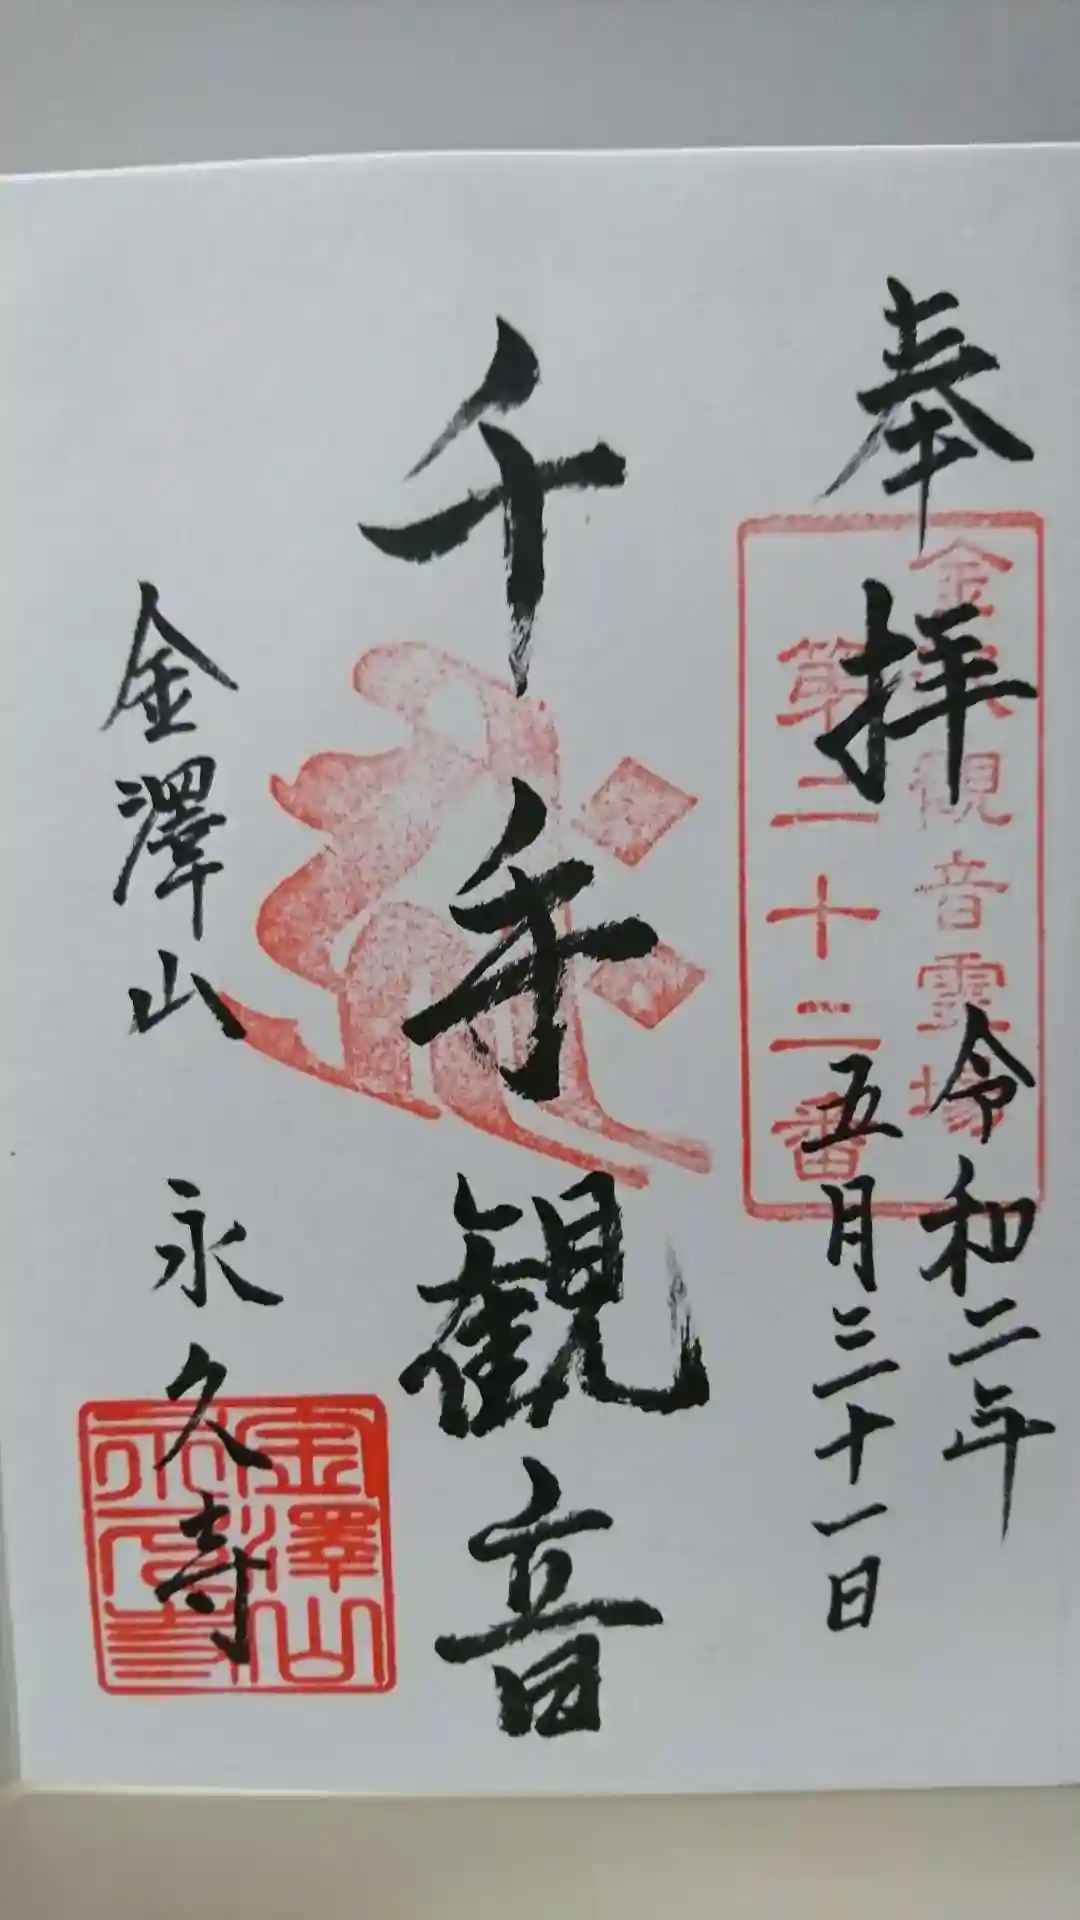 奉拝
令和二年
五月三十一日
第二十二番
千手観音
金澤山 永久寺
金澤山
永久寺